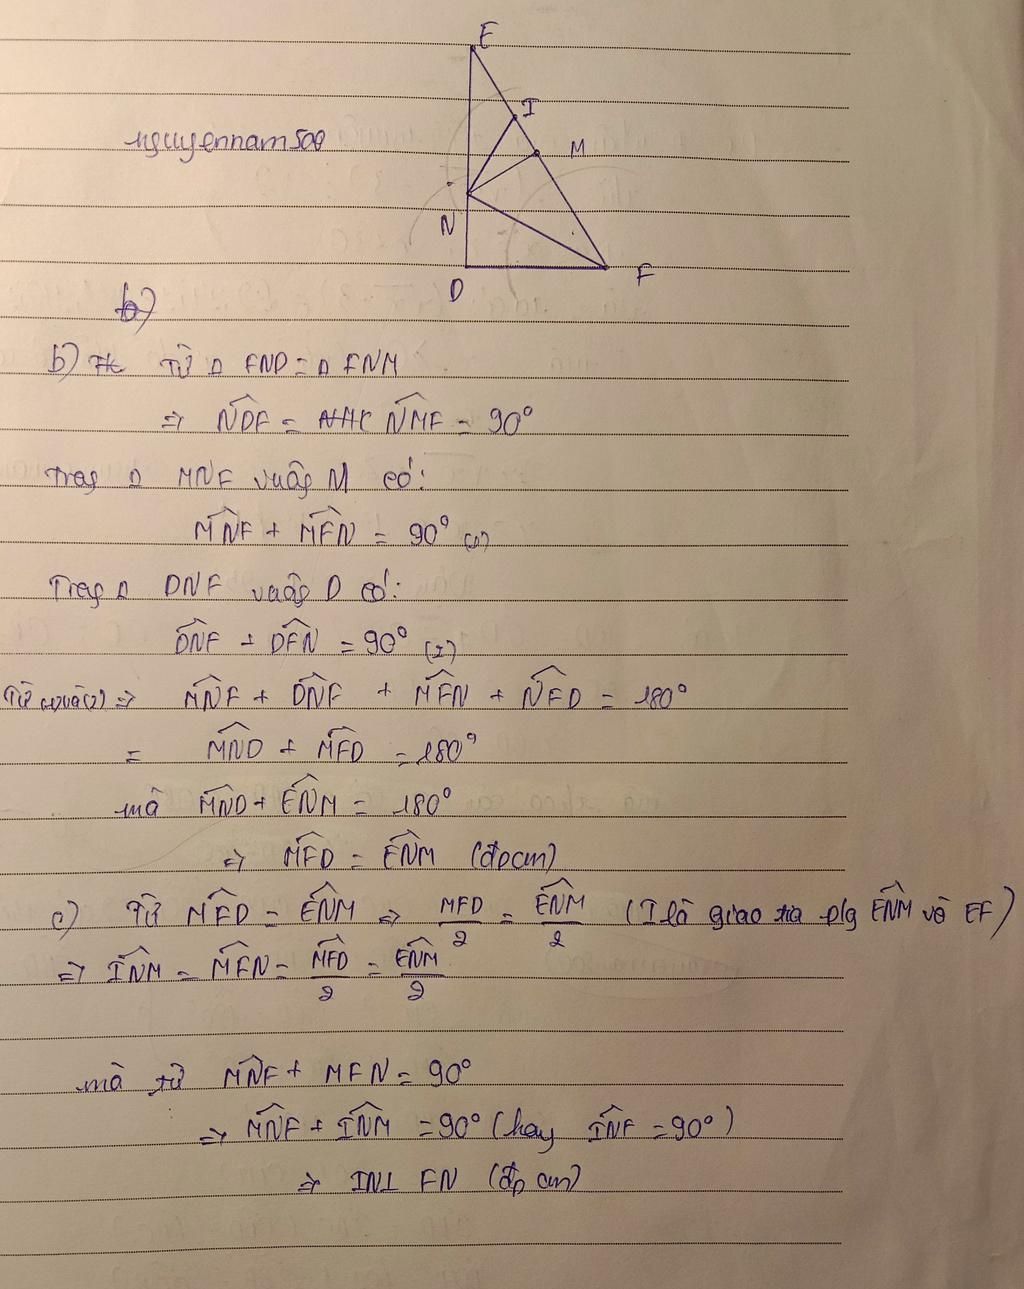 E
I
nguyennam508
M
N
F
D
b)
b) Từ Δ FND = Δ FNM
⇒ NDF = NMF = 90°
Trog Δ MNF vuôg M có:
MNF + MFN = 90° (1)
Trog Δ DNF vuôg D có:
DNF + DFN = 90° (2)
Từ (1) và (2) ⇒ MNF + DNF + MFN + NFD = 180°
= MND + MFD = 180°
mà MND + ENM = 180°
⇒ MFD = ENM (đpcm)
c) Từ MFD = ENM ⇒ MFD/2 = ENM/2 (I là giao tia p/g ENM và EF)
⇒ INM = MFN = MFD/2 = ENM/2
mà từ MNF + MFN = 90°
⇒ MNF + INM = 90° (hay INF = 90°)
⇒ IN⊥ FN (đpcm)